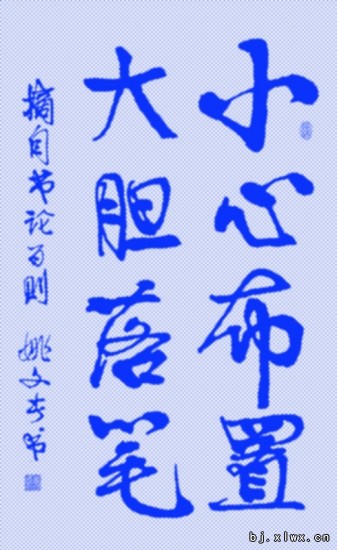 小心布置
大胆落笔
摘自书论百则 姚文奎书
bj.xlwx.cn